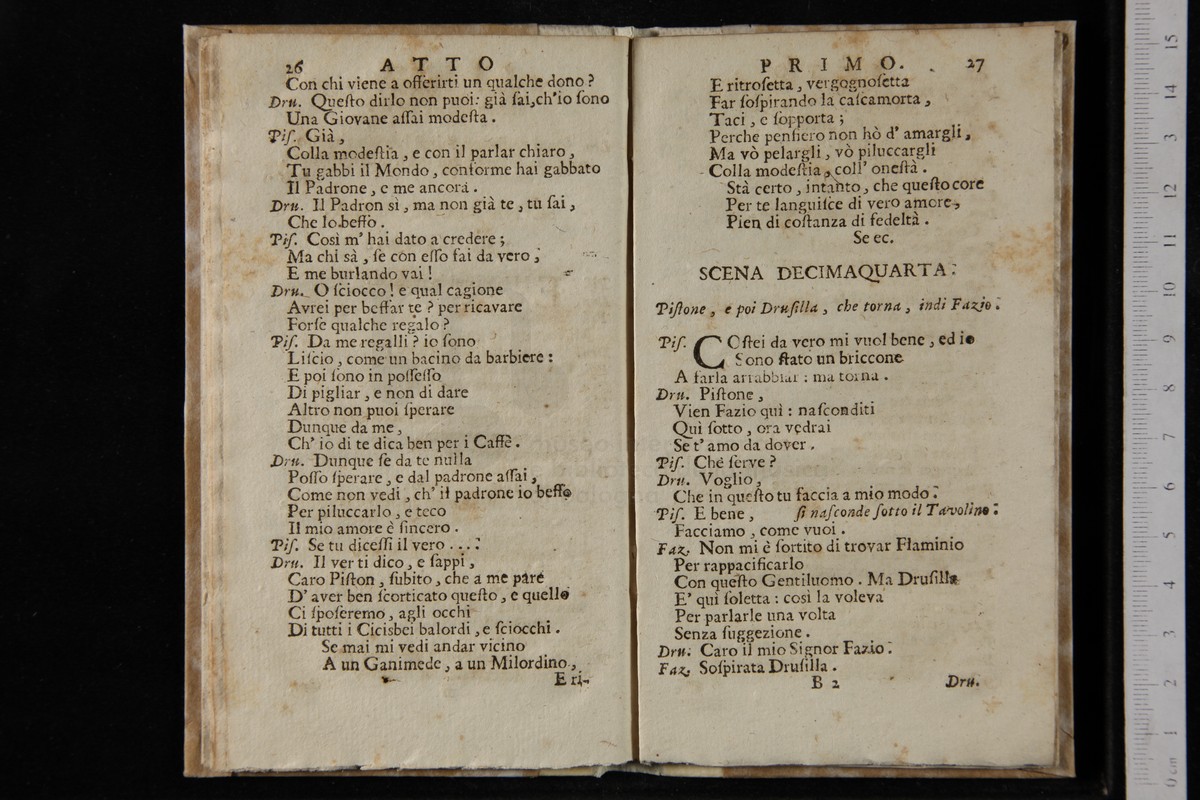 26 ATTO
Con chi viene a offerirti un qualche dono?
Dru. Queſto dirlo non puoi: già ſai, ch'io ſono
Una Giovane aſſai modeſta.
Piſ. Già,
Colla modeſtia, e con il parlar chiaro,
Tu gabbi il Mondo, conforme hai gabbato
Il Padrone, e me ancora.
Dru. Il Padron sì, ma non già te, tu ſai,
Che lo beffo.
Piſ. Così m' hai dato a credere;
Ma chi sà, ſe con eſſo fai da vero,
E me burlando vai!
Dru. O ſciocco! e qual cagione
Avrei per beffar te? per ricavare
Forſe qualche regalo?
Piſ. Da me regalli? io ſono
Liſcio, come un bacino da barbiere:
E poi ſono in poſſeſſo
Di pigliar, e non di dare
Altro non puoi ſperare
Dunque da me,
Ch' io di te dica ben per i Caffè.
Dru. Dunque ſe da te nulla
Poſſo ſperare, e dal padrone aſſai,
Come non vedi, ch' il padrone io beffo
Per piluccarlo, e teco
Il mio amore è ſincero.
Piſ. Se tu diceſſi il vero ....
Dru. Il ver ti dico, e ſappi,
Caro Piſton, ſubito, che a me pare
D' aver ben ſcorticato queſto, e quello
Ci ſpoſeremo, agli occhi
Di tutti i Cicisbei balordi, e ſciocchi.
Se mai mi vedi andar vicino
A un Ganimede, a un Milordino,
E ri-
PRIMO. 27
E ritroſetta, vergognoſetta
Far ſoſpirando la caſcamorta,
Taci, e ſopporta;
Perche penſiero non hò d' amargli,
Ma vò pelargli, vò piluccargli
Colla modeſtia, coll' oneſtà.
Stà certo, intanto, che queſto core
Per te languiſce di vero amore,
Pien di coſtanza di fedeltà.
Se ec.
SCENA DECIMAQUARTA.
Piſtone, e poi Druſilla, che torna, indi Fazio.
Piſ. COſtei da vero mi vuol bene, ed io
Sono ſtato un briccone
A farla arrabbiar: ma torna.
Dru. Piſtone,
Vien Fazio quì: naſconditi
Quì ſotto, ora vedrai
Se t' amo da dover.
Piſ. Ché ſerve?
Dru. Voglio,
Che in queſto tu faccia a mio modo.
Piſ. E bene, ſi naſconde ſotto il Tavolino.
Facciamo, come vuoi.
Faz. Non mi è ſortito di trovar Flaminio
Per rappacificarlo
Con queſto Gentiluomo. Ma Druſilla
E' quì ſoletta: così la voleva
Per parlarle una volta
Senza ſuggezione.
Dru. Caro il mio Signor Fazio.
Faz. Soſpirata Druſilla.
B 2 Dru.